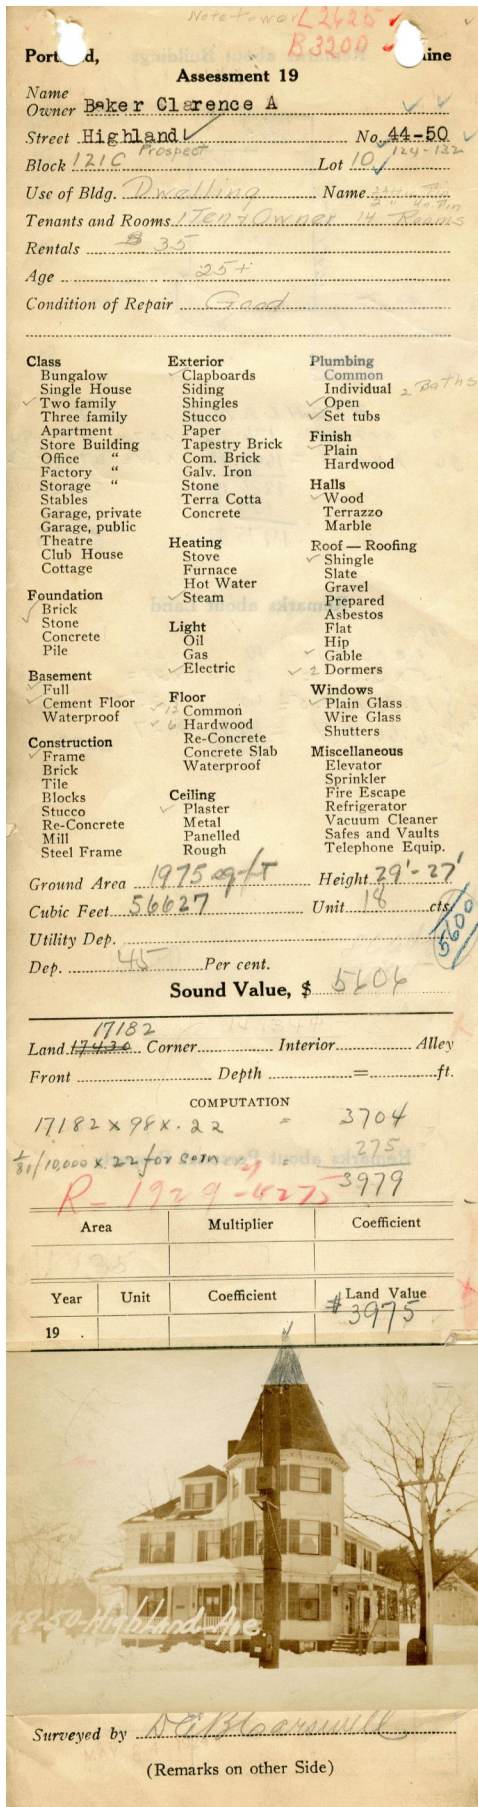 Note tower L 2625
B 3200
Assessment 19
Name
Owner Baker Clarence A
Street Highland No. 44-50
Prospect 124-132
Block 121C Lot 10
Use of Bldg. Dwelling Name
Tenants and Rooms 1 Ten + Owner 14 Rooms
Rentals $ 35
Age 25+
Condition of Repair Good
Class
Bungalow
Single House
Two family
Three family
Apartment
Store Building
Office "
Factory "
Storage "
Stables
Garage, private
Garage, public
Theatre
Club House
Cottage
Foundation
Brick
Stone
Concrete
Pile
Basement
Full
Cement Floor
Waterproof
Construction
Frame
Brick
Tile
Blocks
Stucco
Re-Concrete
Mill
Steel Frame
Exterior
Clapboards
Siding
Shingles
Stucco
Paper
Tapestry Brick
Com. Brick
Galv. Iron
Stone
Terra Cotta
Concrete
Heating
Stove
Furnace
Hot Water
Steam
Light
Oil
Gas
Electric
Floor
12 Common
6 Hardwood
Re-Concrete
Concrete Slab
Waterproof
Ceiling
Plaster
Metal
Panelled
Rough
Plumbing
Common
Individual 2 Baths
Open
Set tubs
Finish
Plain
Hardwood
Halls
Wood
Terrazzo
Marble
Roof — Roofing
Shingle
Slate
Gravel
Prepared
Asbestos
Flat
Hip
Gable
2 Dormers
Windows
Plain Glass
Wire Glass
Shutters
Miscellaneous
Elevator
Sprinkler
Fire Escape
Refrigerator
Vacuum Cleaner
Safes and Vaults
Telephone Equip.
Ground Area 1975 sq-ft Height 29'-27'
Cubic Feet 56627 Unit 18 cts.
5600
Utility Dep.
Dep. 45 Per cent.
Sound Value, $ 5606
17182
Land 17430 Corner Interior Alley
Front Depth = ft.
COMPUTATION
17182 x 98 x .22 = 3704
/10,000 x .22 for corn = 275
3979
R-1929-4275
Area Multiplier Coefficient
Year Unit Coefficient Land Value
# 3975
19 .
48-50-Highland Ave.
Surveyed by
(Remarks on other Side)